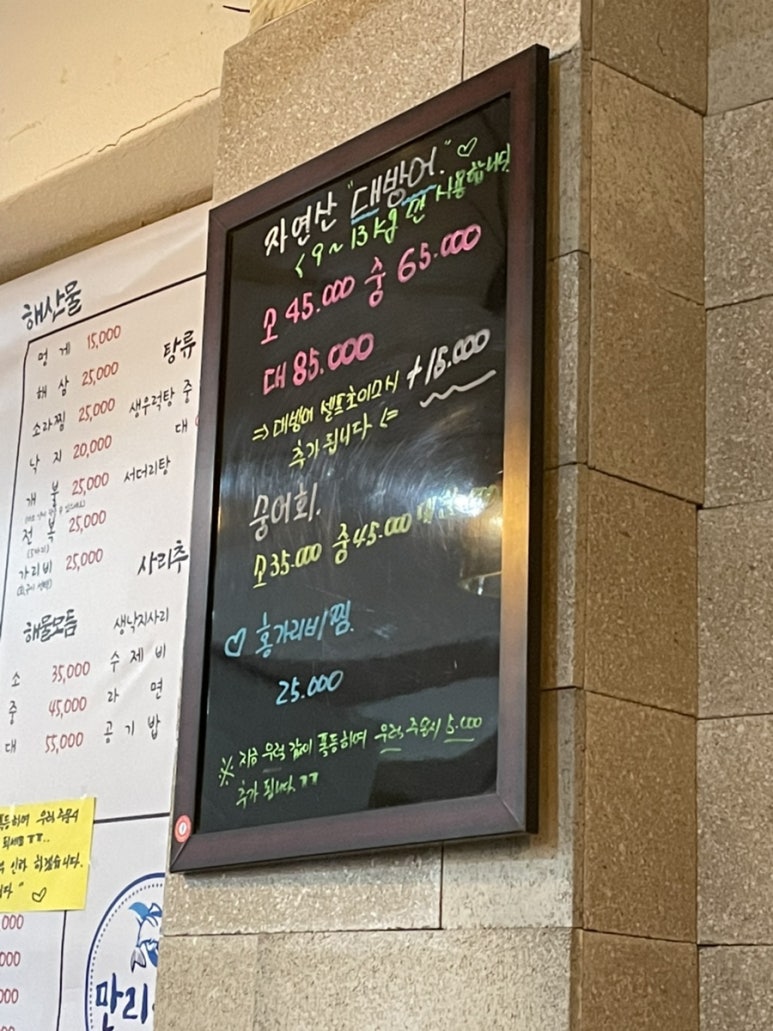 자연산 "대방어." ♡
< 9~13kg 만 사용합니다
소 45.000 중 65.000
대 85.000
=> 대방어 셀프초이스시 +15.000
추가 됩니다 <=
숭어회.
소 35.000 중 45.000
♡ 홍가리비찜.
25.000
※ 지금 우럭 값이 폭등하여 우럭 주문시 5.000
추가 됩니다. ㅠㅠ
해산물
멍 게 15,000
해 삼 25,000
소라찜 25,000
낙 지 20,000
개 불 25,000
전 복 25,000
가리비 25,000
해물모듬
소 35,000
중 45,000
대 55,000
탕류
생우럭탕 중
대
서더리탕
사리추
생낙지사리
수 제 비
라 면
공 기 밥
폭등하여 우럭 주문시
인하 하겠습니다.
♡
000
000
000
만리